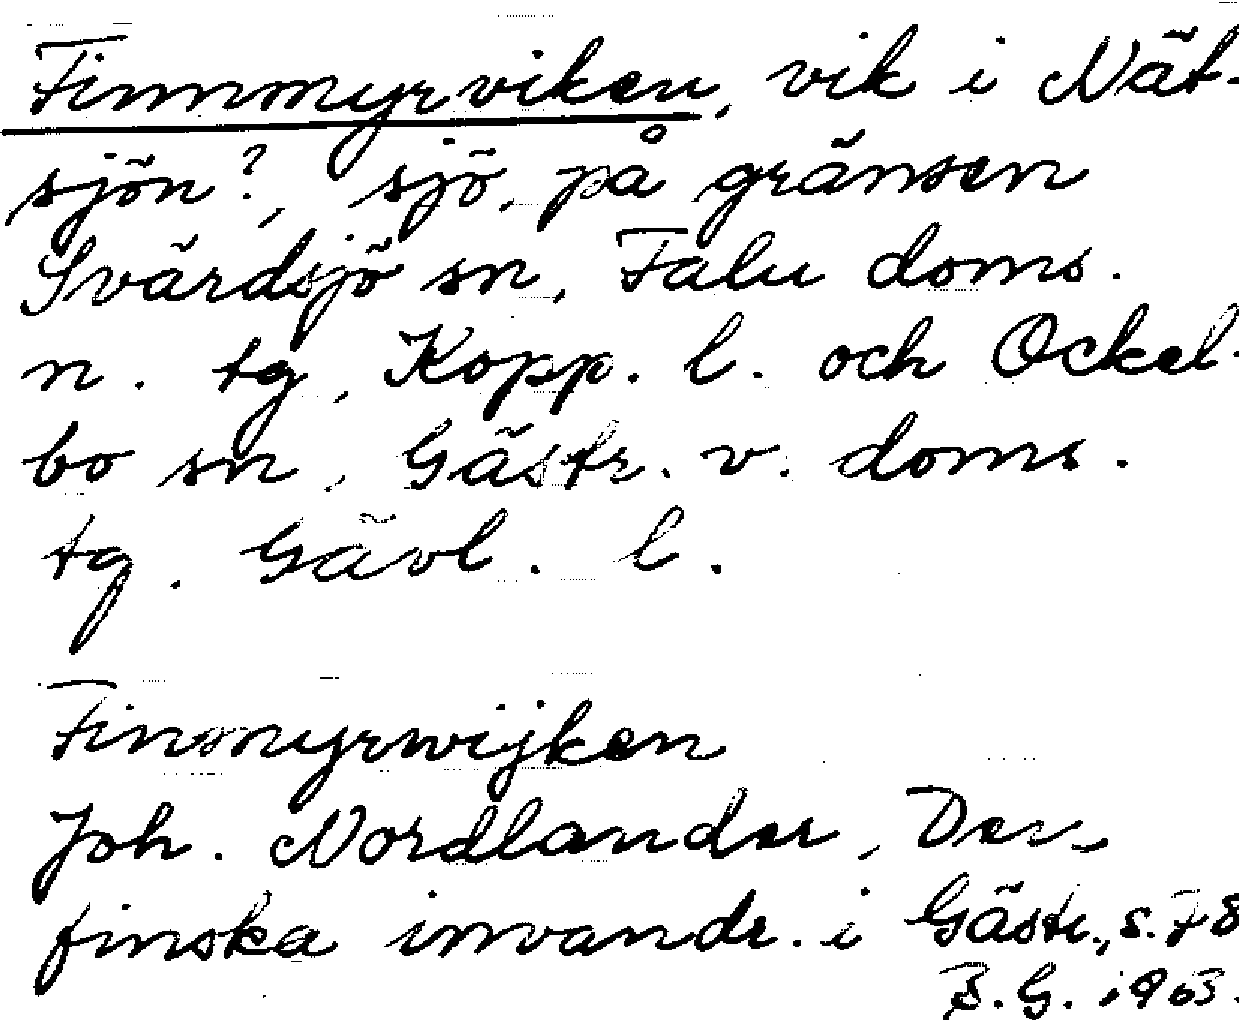 Finnmyrviken, vik i Nät-
sjön?, sjö, på gränsen
Svärdsjö sn, Falu doms.
n. tg, Kopp. l. och Ockel-
bo sn, Gästr. v. doms.
tg. Gävl. l.
Finmyrwijken
Joh. Nordlander, Den
finska invandr. i Gästr., s. 78
B.G. 1963.